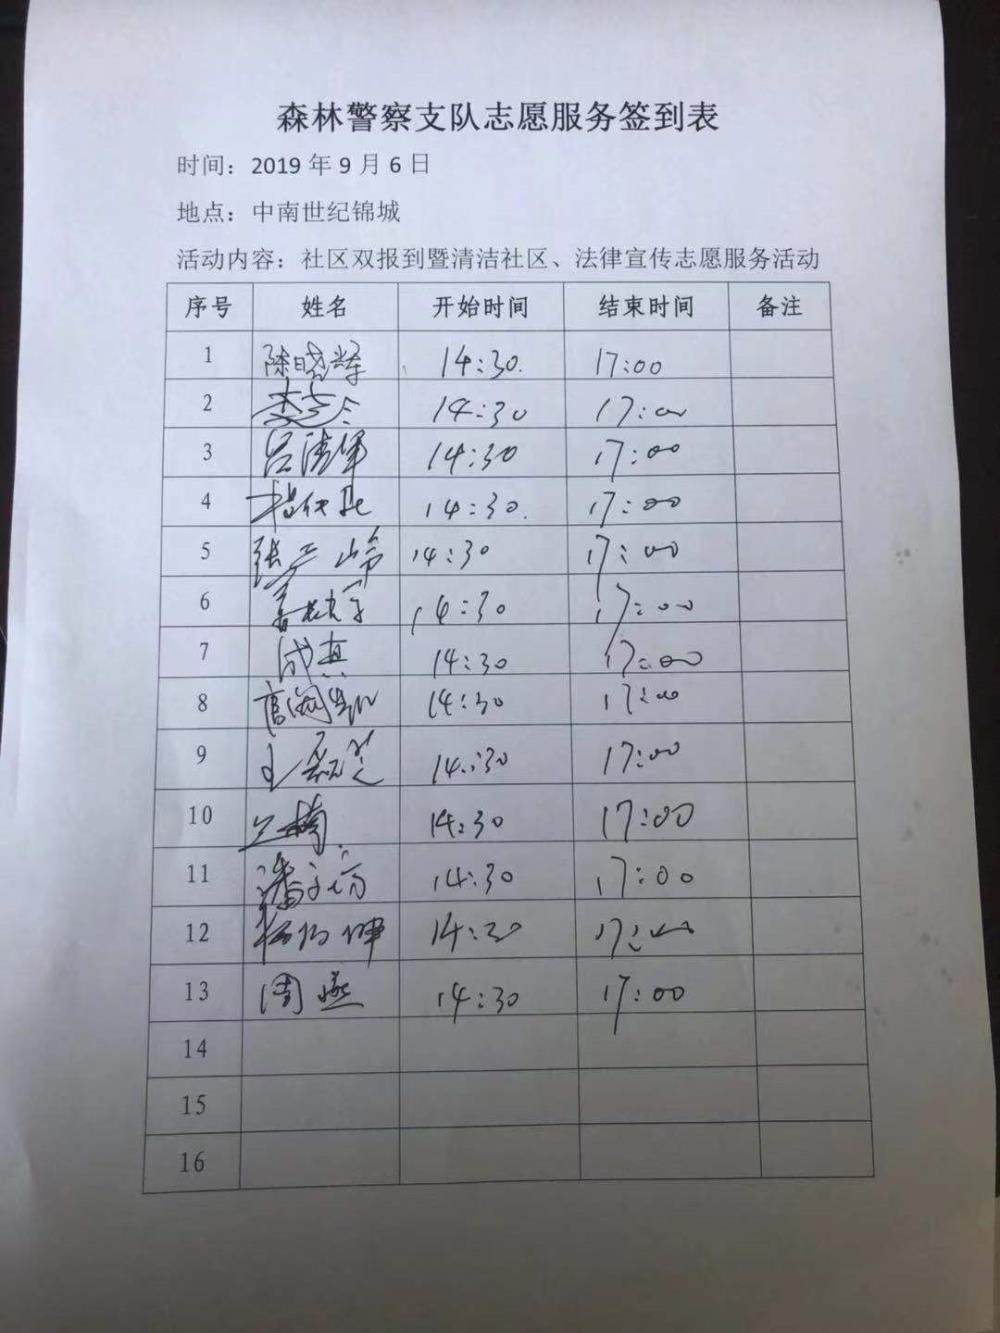 森林警察支队志愿服务签到表
时间：2019 年 9 月 6 日
地点：中南世纪锦城
活动内容：社区双报到暨清洁社区、法律宣传志愿服务活动
序号 姓名 开始时间 结束时间 备注
1 陈晓辉 14:30. 17:00
2 14:30 17:00
3 吕清军 14:30 17:00
4 14:30. 17:00
5 14:30 17:00
6 14:30 17:00
7 成真 14:30 17:00
8 14:30 17:00
9 14:30 17:00
10 兰楠 14:30 17:00
11 14:30 17:00
12 14:30 17:00
13 周燕 14:30 17:00
14
15
16